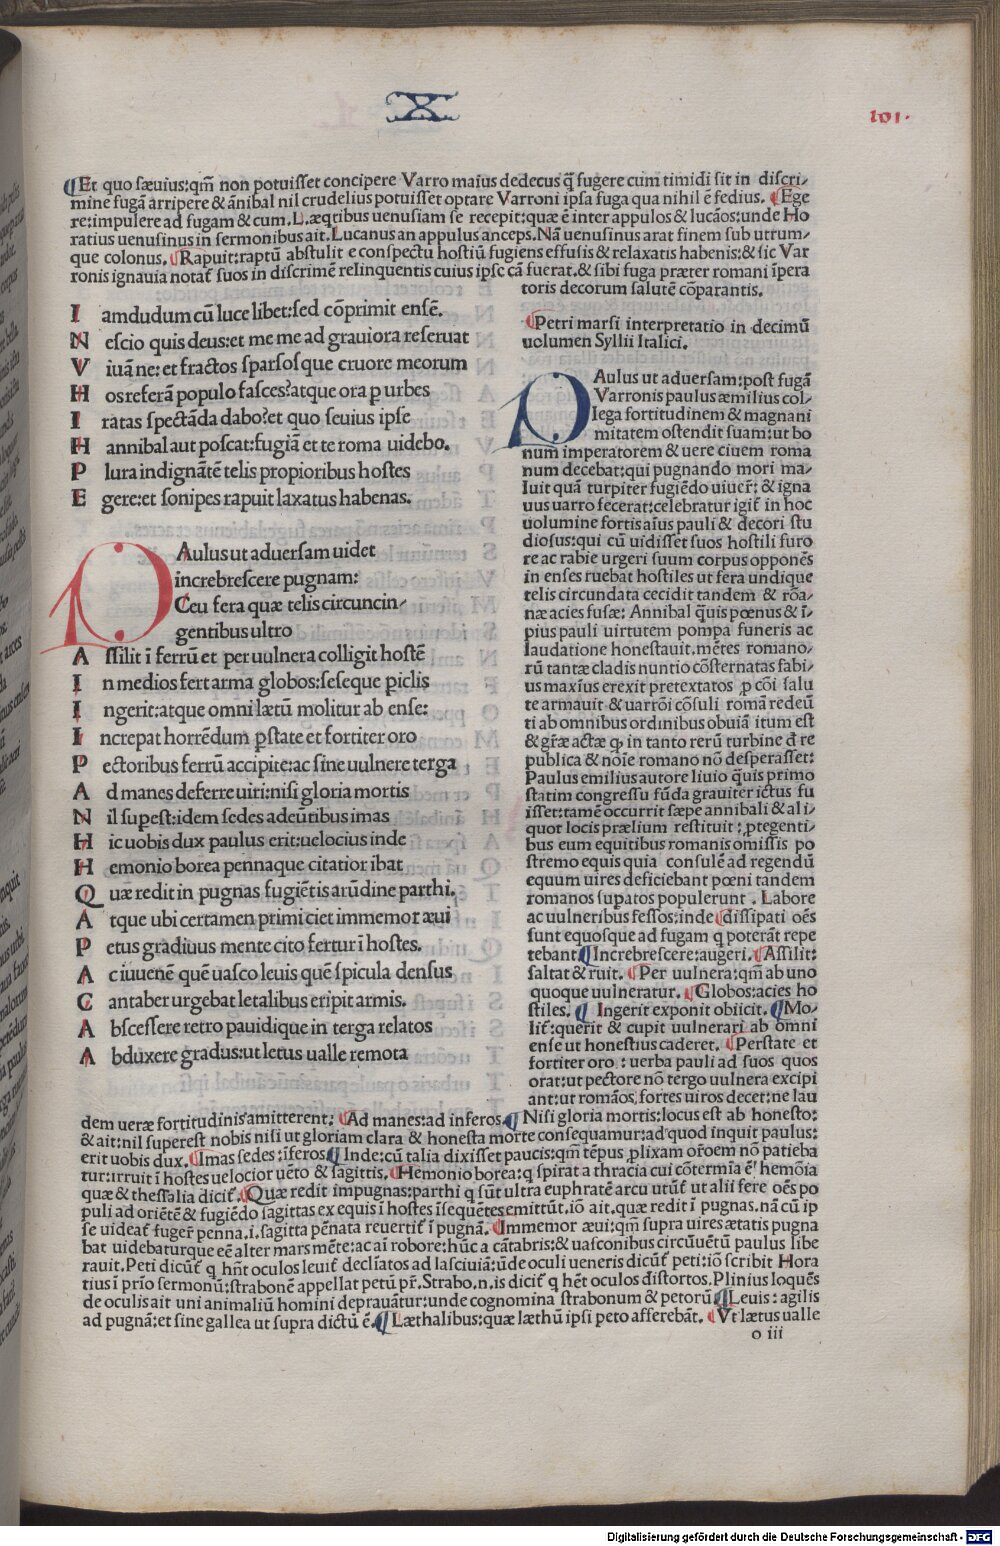 X
101.
¶Et quo sæuius:qm̃ non potuisset concipere Varro maius dedecus q̃ fugere cum timidi sit in discri/
mine fugã arripere & ãnibal nil crudelius potuisset optare Varroni ipsa fuga qua nihil ẽ fedius. ¶Ege
re:impulere ad fugam & cum.L.æqtibus uenusiam se recepit:quæ ẽ inter appulos & lucãos:unde Ho
ratius uenusinus in sermonibus ait.Lucanus an appulus anceps.Nã uenusinus arat finem sub utrum/
que colonus. ¶Rapuit:raptũ abstulit e conspectu hostiũ fugiens effusis & relaxatis habenis:& sic Var
ronis ignauia notat̃ suos in discrimẽ relinquentis cuius ipse cã fuerat.& sibi fuga præter romani ĩpera
toris decorum salutẽ cõparantis.
I amdudum cũ luce libet:sed cõprimit ensẽ.
N escio quis deus:et me me ad grauiora reseruat
V iuã ne:et fractos sparsosque cruore meorum
H os referã populo fasces?atque ora p urbes
I ratas spectãda dabo?et quo seuius ipse
H annibal aut poscat:fugiã et te roma uidebo.
P lura indignãtẽ telis propioribus hostes
E gere:et sonipes rapuit laxatus habenas.
PAulus ut aduersam uidet
increbrescere pugnam:
Ceu fera quæ telis circuncin/
gentibus ultro
A ssilit ĩ ferrũ et per uulnera colligit hostẽ
I n medios fert arma globos:seseque piclis
I ngerit:atque omni lætũ molitur ab ense:
I ncrepat horrẽdum pstate et fortiter oro
P ectoribus ferrũ accipite:ac sine uulnere terga
A d manes deferre uiri:nisi gloria mortis
N il supest:idem sedes adeũtibus imas
H ic uobis dux paulus erit:uelocius inde
H emonio borea pennaque citatior ibat
Q uæ redit in pugnas fugiẽtis arũdine parthi.
A tque ubi certamen primi ciet immemor æui
P etus gradiuus mente cito fertur ĩ hostes.
A c iuuenẽ quẽ uasco leuis quẽ spicula densus
C antaber urgebat letalibus eripit armis.
A bscessere retro pauidique in terga relatos
A bduxere gradus:ut letus ualle remota
¶Petri marsi interpretatio in decimũ
uolumen Syllii Italici.
PAulus ut aduersam:post fugã
Varronis paulus æmilius col/
lega fortitudinem & magnani
mitatem ostendit suam:ut bo
num imperatorem & uere ciuem roma
num decebat:qui pugnando mori ma/
luit quã turpiter fugiẽdo uiuer̃: & igna
uus uarro fecerat:celebratur igit̃ in hoc
uolumine fortis aĩus pauli & decori stu
diosus:qui cũ uidisset suos hostili furo
re ac rabie urgeri suum corpus opponẽs
in enses ruebat hostiles ut fera undique
telis circundata cecidit tandem & rõa/
næ acies fusæ: Annibal q̃uis pœnus & ĩ/
pius pauli uirtutem pompa funeris ac
laudatione honestauit.mẽtes romano/
rũ tantæ cladis nuntio cõsternatas fabi/
us maxĩus erexit pretextatos p cõi salu
te armauit & uarrõi cõsuli romã redeũ
ti ab omnibus ordinibus obuiã itum est
& gr̃æ actæ q, in tanto rerũ turbine d̃ re
publica & noĩe romano nõ desperasset:
Paulus emilius autore liuio q̃uis primo
statim congressu fũda grauiter ictus fu
isset:tamẽ occurrit sæpe annibali & ali/
quot locis prælium restituit: ptegenti/
bus eum equitibus romanis omissis po
stremo equis quia consulẽ ad regendũ
equum uires deficiebant pœni tandem
romanos supatos populerunt . Labore
ac uulneribus fessos:inde ¶dissipati oẽs
sunt equosque ad fugam q poterãt repe
tebant ¶Increbrescere:augeri. ¶Assilit:
saltat & ruit. ¶Per uulnera:qm̃ ab uno
quoque uulneratur. ¶Globos:acies ho
stiles. ¶ Ingerit exponit obiicit. ¶Mo/
lit̃:querit & cupit uulnerari ab omni
ense ut honestius caderet. ¶Perstate et
fortiter oro : uerba pauli ad suos quos
orat:ut pectore nõ tergo uulnera excipi
ant:ut romãos fortes uiros decet:ne lau
dem ueræ fortitudinis amitterent: ¶Ad manes:ad inferos.¶ Nisi gloria mortis:locus est ab honesto:
& ait:nil superest nobis nisi ut gloriam clara & honesta morte consequamur:ad quod inquit paulus:
erit uobis dux. ¶Imas sedes:ĩferos¶ Inde:cũ talia dixisset paucis:qm̃ tẽpus plixam orõem nõ patieba
tur:irruit ĩ hostes uelocior uẽto & sagittis. ¶Hemonio borea:q spirat a thracia cui cõtermia ẽ hemõia
quæ & thessalia dicit̃. ¶Quæ redit impugnas:parthi q sũt ultra euphratẽ arcu utũt̃ ut alii fere oẽs po
puli ad oriẽtẽ & fugiẽdo sagittas ex equis ĩ hostes ĩsequẽtes emittũt.iõ ait.quæ redit ĩ pugnas.nã cũ ip
se uideat̃ fuger̃ penna.i.sagitta pẽnata reuertit̃ ĩ pugnã. ¶Immemor æui:qm̃ supra uires ætatis pugna
bat uidebaturque eẽ alter mars mẽte:ac aĩ robore:hũc a cãtabris:& uasconibus circũuẽtũ paulus libe
rauit.Peti dicũt̃ q hñt oculos leuit̃ declĩatos ad lasciuiã:ũde oculi ueneris dicũt̃ peti:iõ scribit Hora
tius ĩ prĩo sermonũ:strabonẽ appellat petũ pr̃.Strabo.n.is dicit̃ q hẽt oculos distortos.Plinius loquẽs
de oculis ait uni animaliũ homini deprauãtur:unde cognomina strabonum & petorũ ¶Leuis:agilis
ad pugnã:et sine gallea ut supra dictũ ẽ.¶ Læthalibus:quæ læthũ ipsi peto afferebãt. ¶Vt lætus ualle
o iii
Digitalisierung gefördert durch die Deutsche Forschungsgemeinschaft - DFG